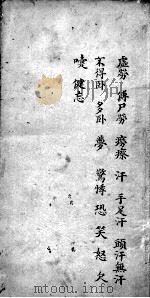 虚勞 傳尸勞 癆瘵 汗 手足汗 頭汗無汗
不得卧 多卧 夢 驚悸 恐 笑 怒 欠
嚏 健忘